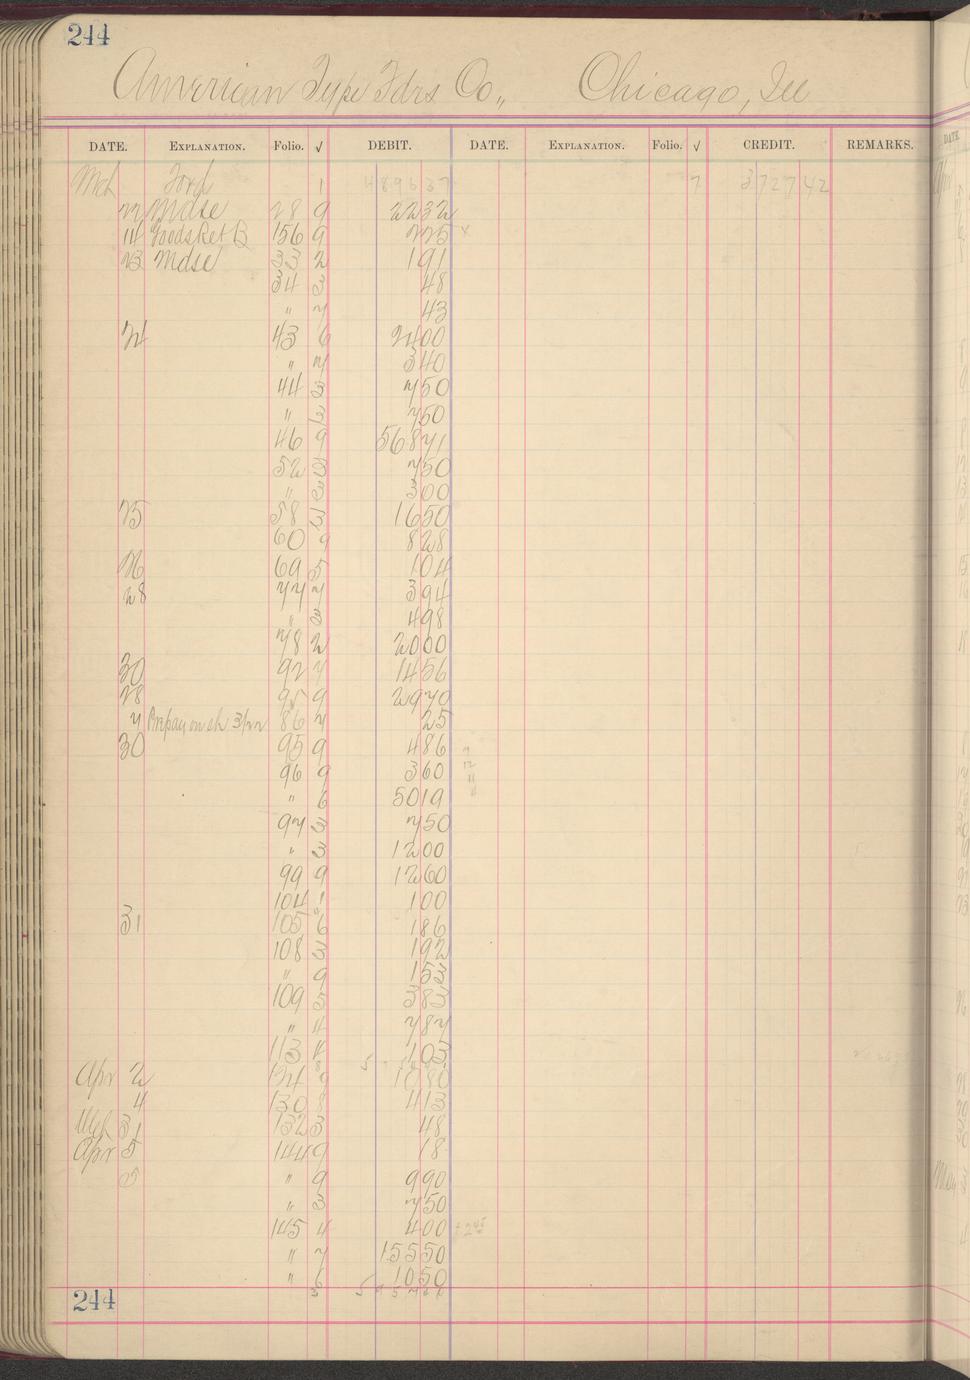 244
American Type Fdrs Co,, Chicago, Ill
DATE. EXPLANATION. Folio. √ DEBIT. DATE. EXPLANATION. Folio. √ CREDIT. REMARKS.
Mch Ford 1 4896 37 7 3727 42
22 Mdse 28 9 22 32
14 Goods Ret B 156 9 2 25 x
23 Mdse 33 2 1 91
34 3 48
" 7 43
24 43 6 24 00
" 7 3 40
44 3 7 50
" 3 7 50
46 9 568 71
52 3 7 50
" 3 3 00
25 58 3 16 50
60 9 8 28
26 69 5 1 04
28 77 7 3 94
" 3 4 98
78 2 20 00
30 92 7 14 56
28 95 9 29 70
7 Prepay on ch 3/22 86 7 25
30 95 9 4 86
96 9 3 60
" 6 50 19
97 3 7 50
" 3 12 00
99 9 12 60
104 1 1 00
31 105 6 1 86
108 3 1 92
" 9 1 53
109 5 3 83
" 4 7 87
113 4 1 03
Apr 2 124 9 10 80
4 130 8 4 13
Mch 31 132 3 48
Apr 5 144 9 18
5 " 9 9 90
" 3 7 50
145 4 4 00
" 7 155 50
" 6 10 50
244